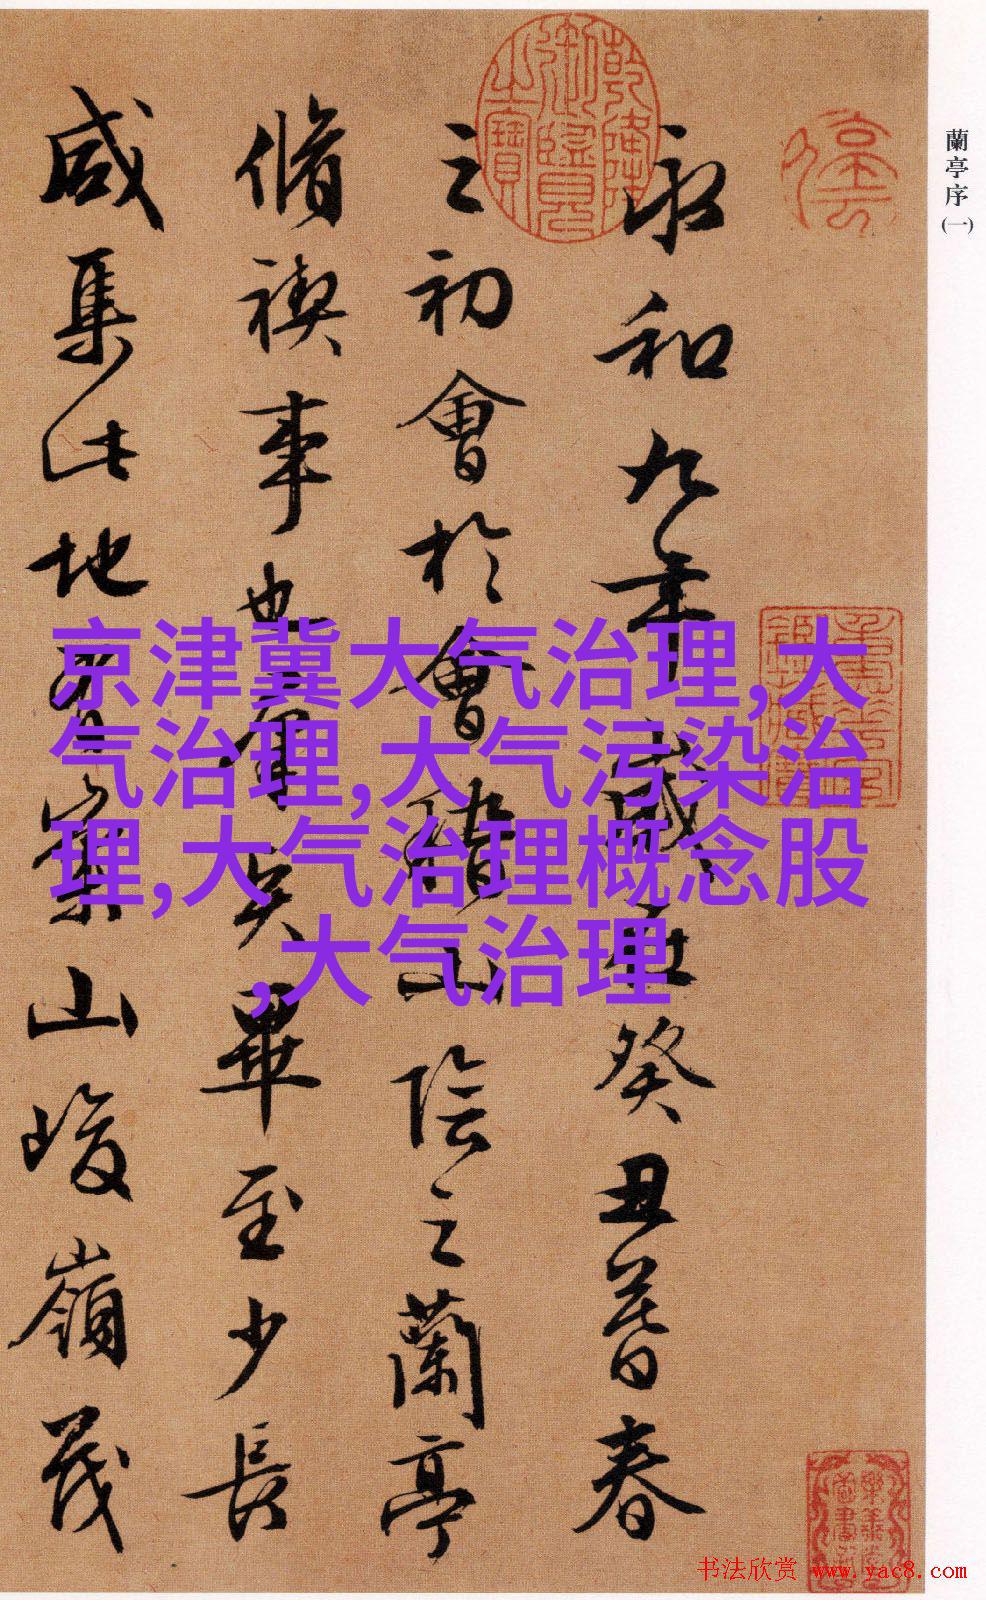 蘭亭序
(一)
永和九年歲在癸丑暮春
之初會於會稽山陰之蘭亭
脩禊事也羣賢畢至少長
咸集此地有崇山峻嶺茂
乾隆御覽之寶
京津冀大气治理,大
气治理,大气污染治
理,大气治理概念股
,大气治理
书法欣赏 www.yac8.com